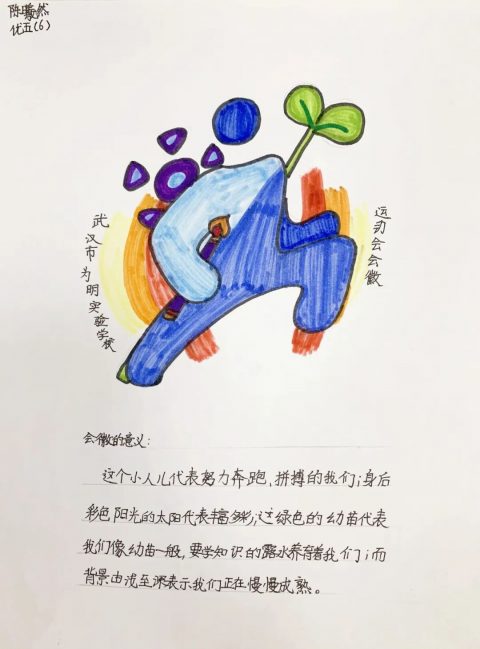 陈 然
优五(6)
武汉市为明实验学校
运动会会徽
会徽的意义：
这个小人儿代表努力奔跑、拼搏的我们；身后
彩色阳光的太阳代表丰富多彩；这绿色的幼苗代表
我们像幼苗一般，要学知识的露水养育着我们；而
背景由浅至深表示我们正在慢慢成熟。